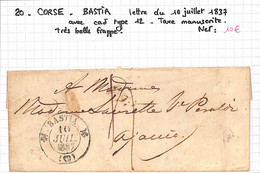 20 - CORSE - BASTIA lettre du 10 juillet 1837
avec cad type 12 - Taxe manuscrite.
très belle frappe. Net: 10€
A Madame
Madame Laurette
ajaccio
BASTIA
10
JUIL
1837
(19)